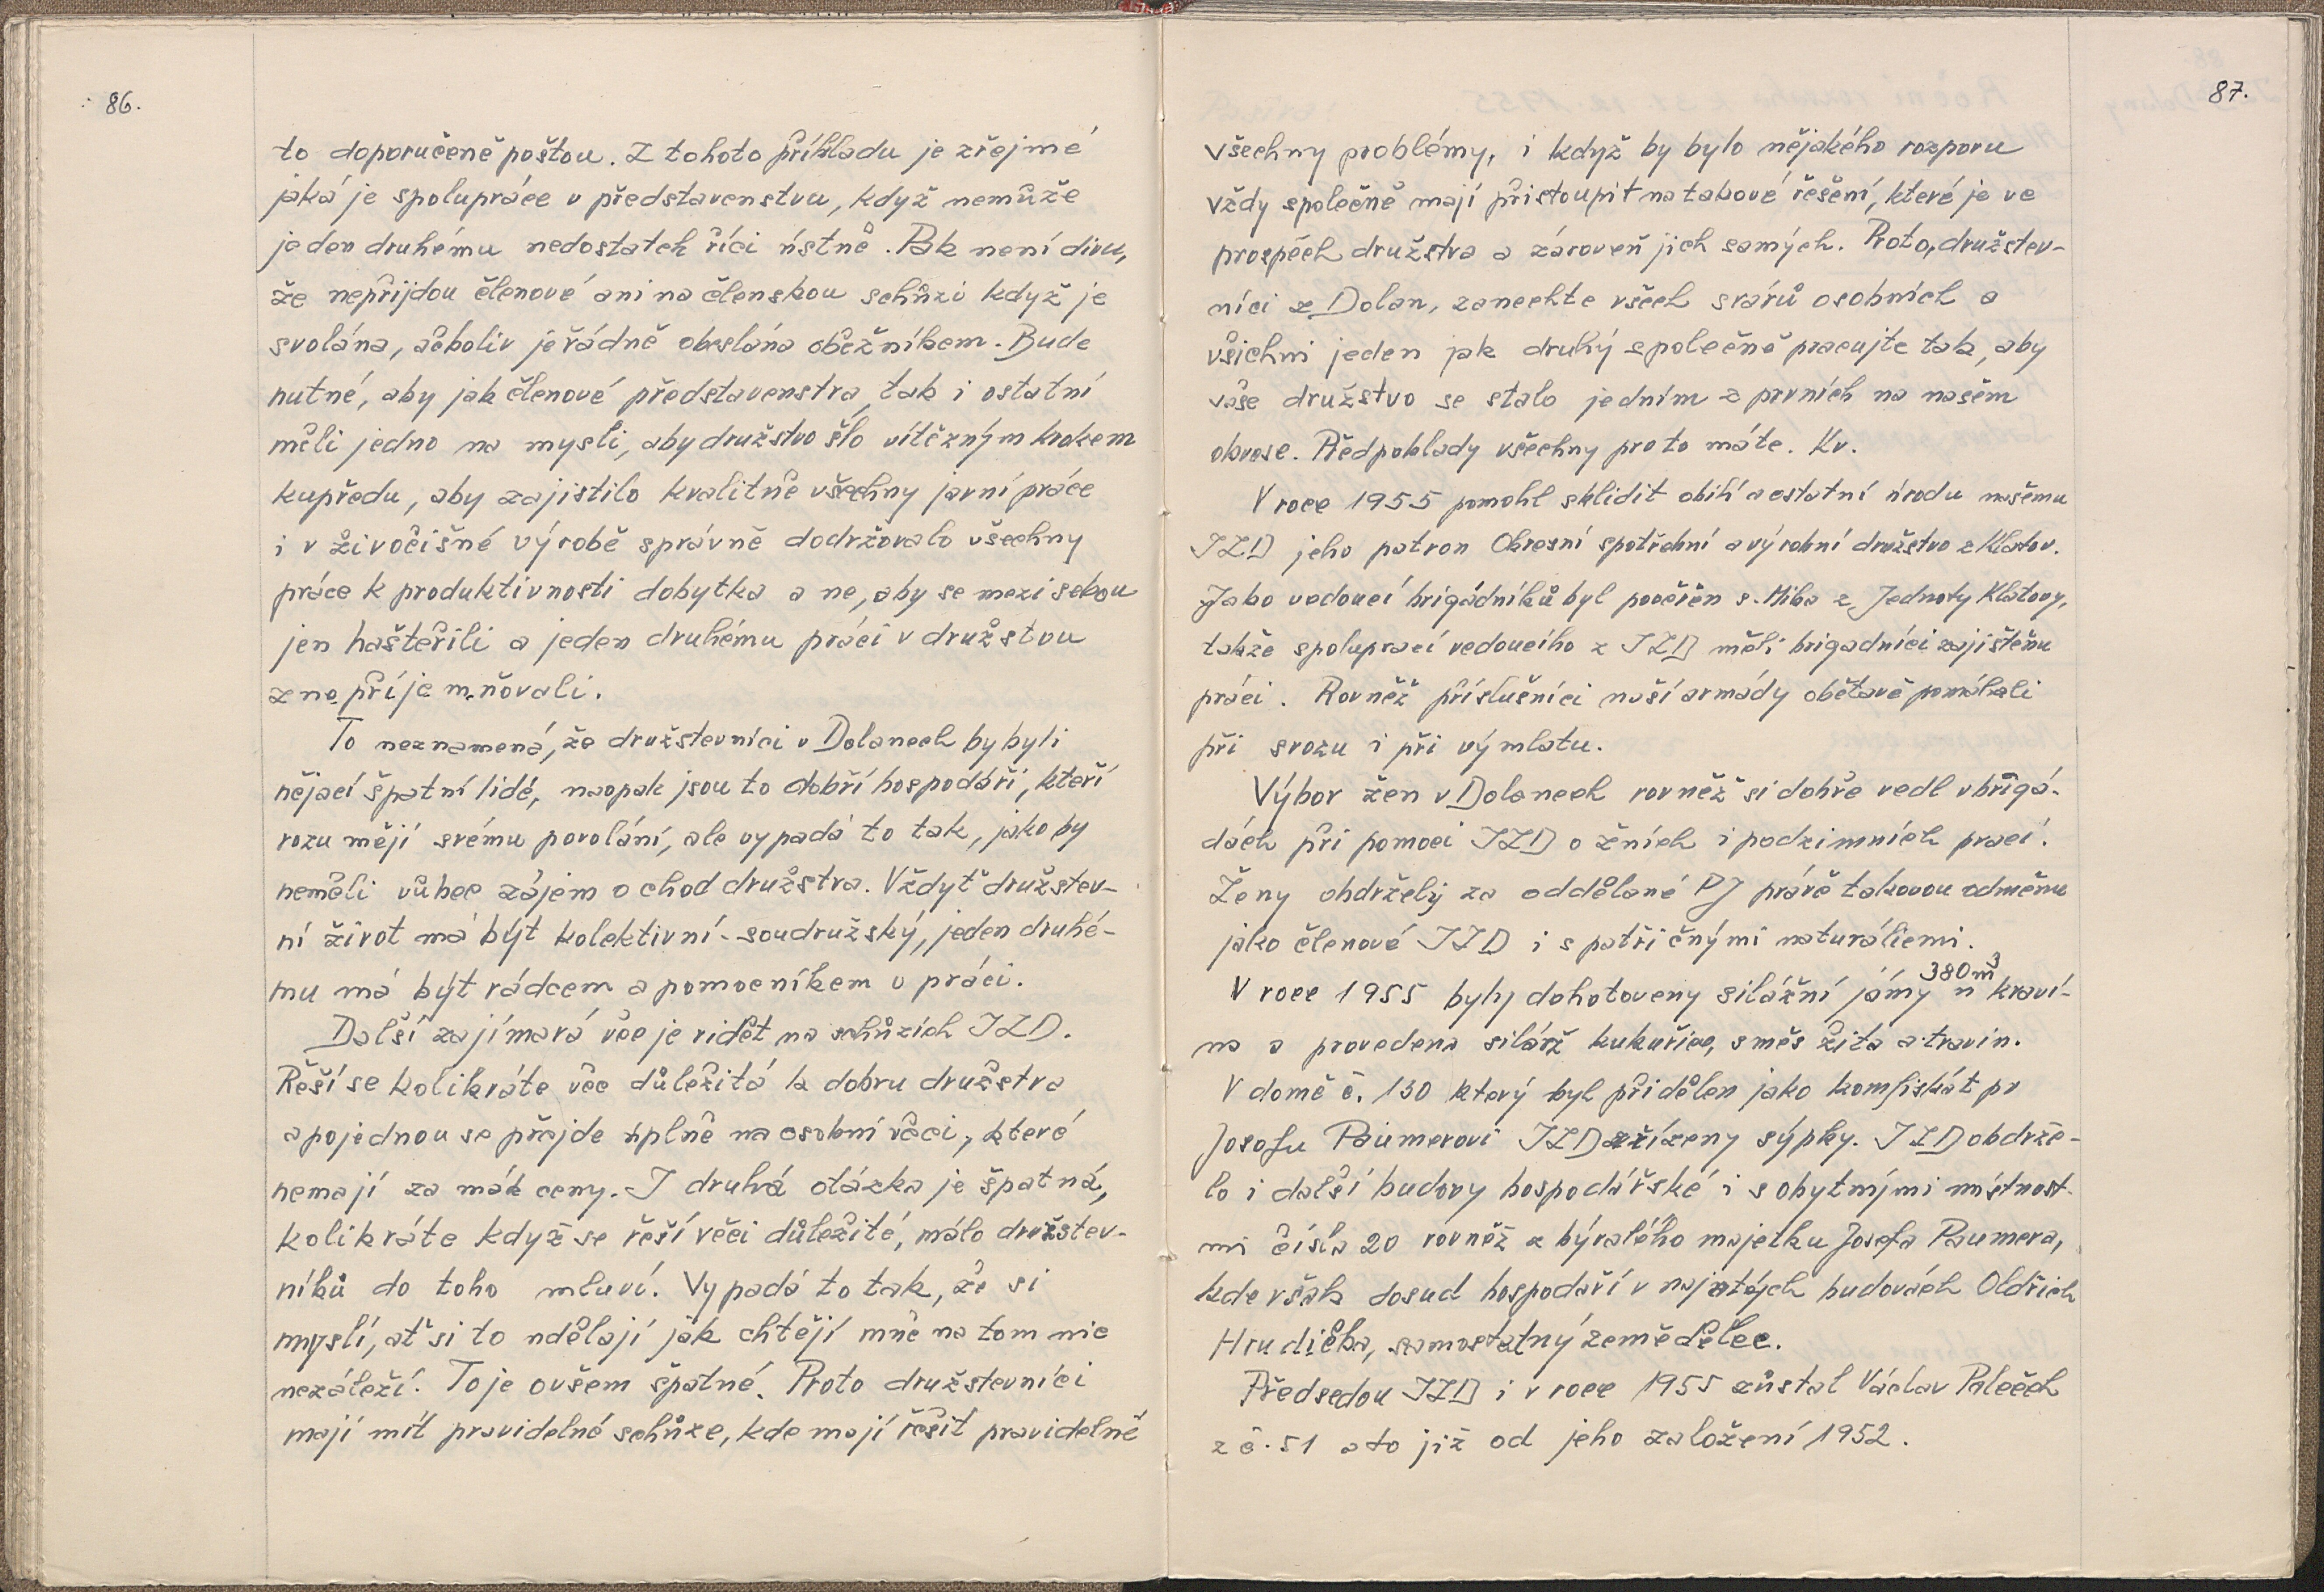 86.
to doporučeně poštou. Z tohoto příkladu je zřejmé
jaká je spolupráce v představenstvu, když nemůže
jeden druhému nedostatek říci ústně. Pak není divu,
že nepřijdou členové ani na členskou schůzi když je
svolána, ačkoliv je řádně obeslána oběžníkem. Bude
nutné, aby jak členové představenstva, tak i ostatní
měli jedno na mysli, aby družstvo šlo vítězným krokem
kupředu, aby zajistilo kvalitně všechny jarní práce
i v živočišné výrobě správně dodržovalo všechny
práce k produktivnosti dobytka a ne, aby se mezi sebou
jen hašteřili a jeden druhému práci v družstvu
znepříjemňovali.
To neznamená, že družstevníci v Dolanech by byli
nějací špatní lidé, naopak jsou to dobří hospodáři, kteří
rozumějí svému povolání, ale vypadá to tak, jako by
neměli vůbec zájem o chod družstva. Vždyť družstev-
ní život má být kolektivní - soudružský, jeden druhé-
mu má být rádcem a pomocníkem v práci.
Další zajímavá věc je vidět na schůzích JZD.
Řeší se kolikráte věc důležitá k dobru družstva
a pojednou se přejde úplně na osobní věci, které
nemají za mák ceny. I druhá otázka je špatná,
kolikráte když se řeší věci důležité, málo družstev-
níků do toho mluví. Vypadá to tak, že si
myslí, ať si to udělají jak chtějí mně na tom nic
nezáleží. To je ovšem špatné. Proto družstevníci
mají mít pravidelné schůze, kde mají řešit pravidelně
87.
všechny problémy, i když by bylo nějakého rozporu
vždy společně mají přistoupit na takové řešení, které je ve
prospěch družstva a zároveň jich samých. Proto, družstev-
níci z Dolan, zanechte všech svárů osobních a
všichni jeden jak druhý společně pracujte tak, aby
vaše družstvo se stalo jedním z prvních na našem
okrese. Předpoklady všechny pro to máte. Kv.
V roce 1955 pomohl sklidit obilí a ostatní úrodu našemu
JZD jeho patron Okresní spotřební a výrobní družstvo z Klatov.
Jako vedoucí brigádníků byl pověřen s. Hiba z Jednoty Klatovy,
takže spoluprací vedoucího z JZD měli brigadníci zajištěnu
práci. Rovněž příslušníci naší armády obětavě pomáhali
při svozu i při výmlatu.
Výbor žen v Dolanech rovněž si dobře vedl v brigá-
dách při pomoci JZD o žních i podzimních prací.
Ženy obdržely za oddělané PJ právě takovou odměnu
jako členové JZD i s patřičnými naturáliemi.
V roce 1955 byly dohotoveny silážní jámy 380 m³ u kraví-
na a provedena siláž kukuřice, směs žita a travin.
V domě č. 130 který byl přidělen jako konfiskát po
Josefu Paumerovi JZD zřízeny sýpky. JZD obdrže-
lo i další budovy hospodářské i s obytnými místnost-
mi čísla 20 rovněž z bývalého majetku Josefa Paumera,
kde však dosud hospodaří v najatých budovách Oldřich
Hrudička, samostatný zemědělec.
Předsedou JZD i v roce 1955 zůstal Václav Paleček
z č. 51 a to již od jeho založení 1952.